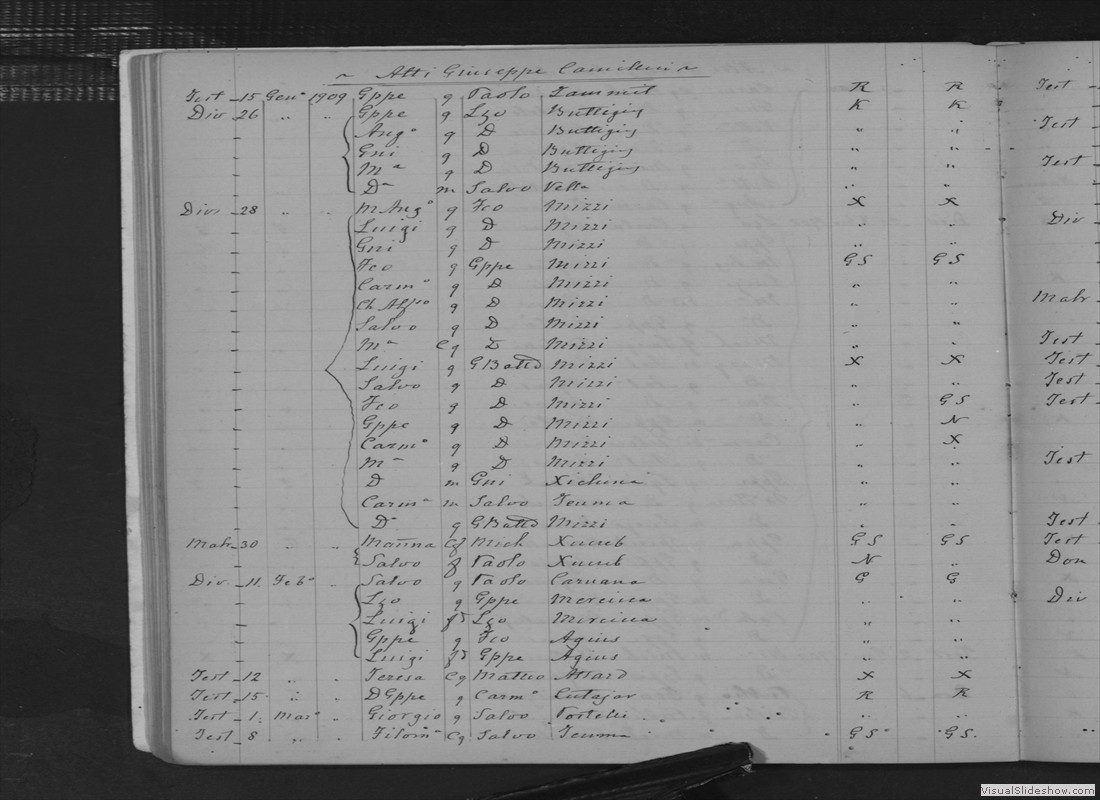 ~ Atti Giuseppe Camilleri ~
Test 15 Gen° 1909 Gppe g Paolo Zammit K K
Div 26 " " Gppe g Lzo Buttigieg K K
Ang° g D Buttigieg " "
Gni g D Buttigieg " "
Mª g D Buttigieg " "
Dª m Salvo Vella " "
Div 28 " " M Ang° g Fco Mizzi X X
Luigi g D Mizzi " "
Gni g D Mizzi " "
Fco g Gppe Mizzi GS GS
Carm° g D Mizzi " "
g D Mizzi " "
Salvo g D Mizzi " "
Mª Cg D Mizzi " "
Luigi g G Batta Mizzi X X
Salvo g D Mizzi " "
Fco g D Mizzi " GS
Gppe g D Mizzi " N
Carm° g D Mizzi " X
Mª g D Mizzi " "
D m Gni Xicluna " "
Carmª m Salvo Teuma " "
Dª g G Batta Mizzi " "
Matr 30 " " Mich Xuereb GS GS
Salvo Paolo Xuereb N "
Div 11 Feb° " Salvo g Paolo Caruana G G
Lzo g Gppe Mercieca " "
Luigi Lzo Mercieca " "
Gppe g Fco Agius " "
Luigi Gppe Agius " "
Test 12 " " Teresa Cg Matteo Attard X X
Test 15 " " D Gppe g Carm° Cutajar K K
Test 1 Mar° " Giorgio g Salvo Portelli " "
Test 8 " " Filomª Cg Salvo Teuma GS GS
Test
Test
Test
Div
Matr
Test
Test
Test
Test
Test
Test
Test
Don
Div
VisualSlideshow.com